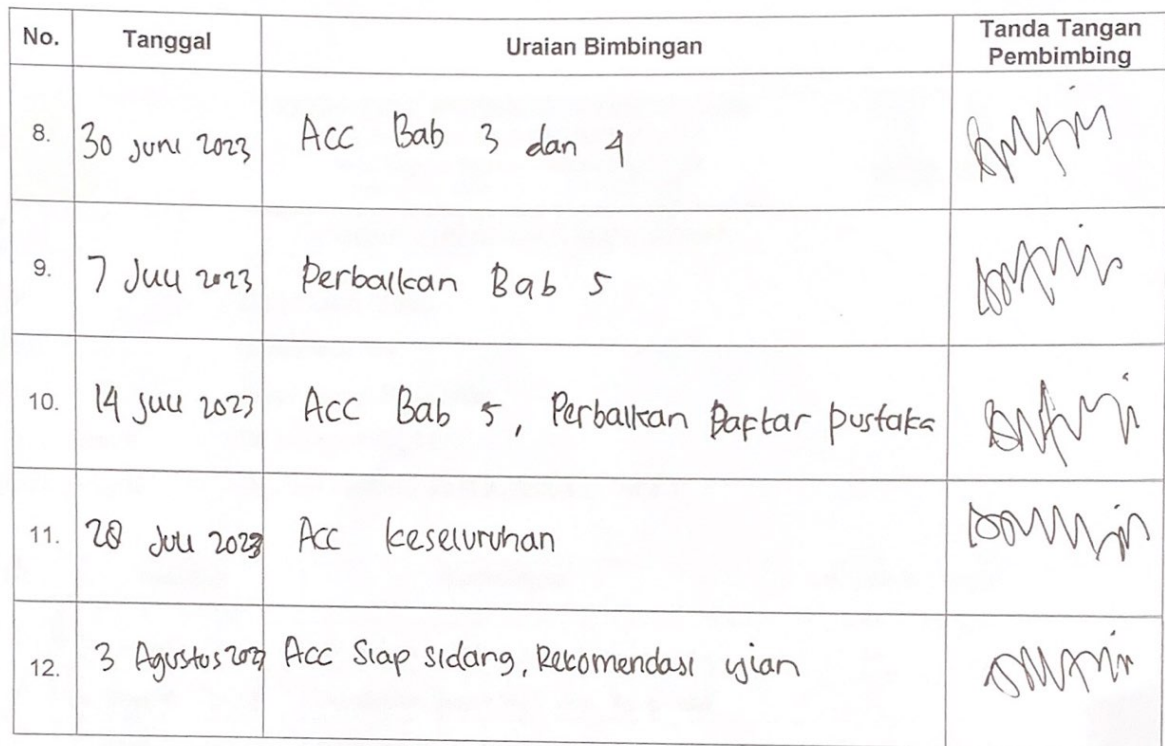 No. Tanggal Uraian Bimbingan Tanda Tangan Pembimbing
8. 30 Juni 2023 Acc Bab 3 dan 4
9. 7 Juli 2023 Perbaikan Bab 5
10. 14 Juli 2023 Acc Bab 5, Perbaikan Daptar pustaka
11. 28 Juli 2023 Acc keseluruhan
12. 3 Agustus 2023 Acc Siap sidang, Rekomendasi ujian